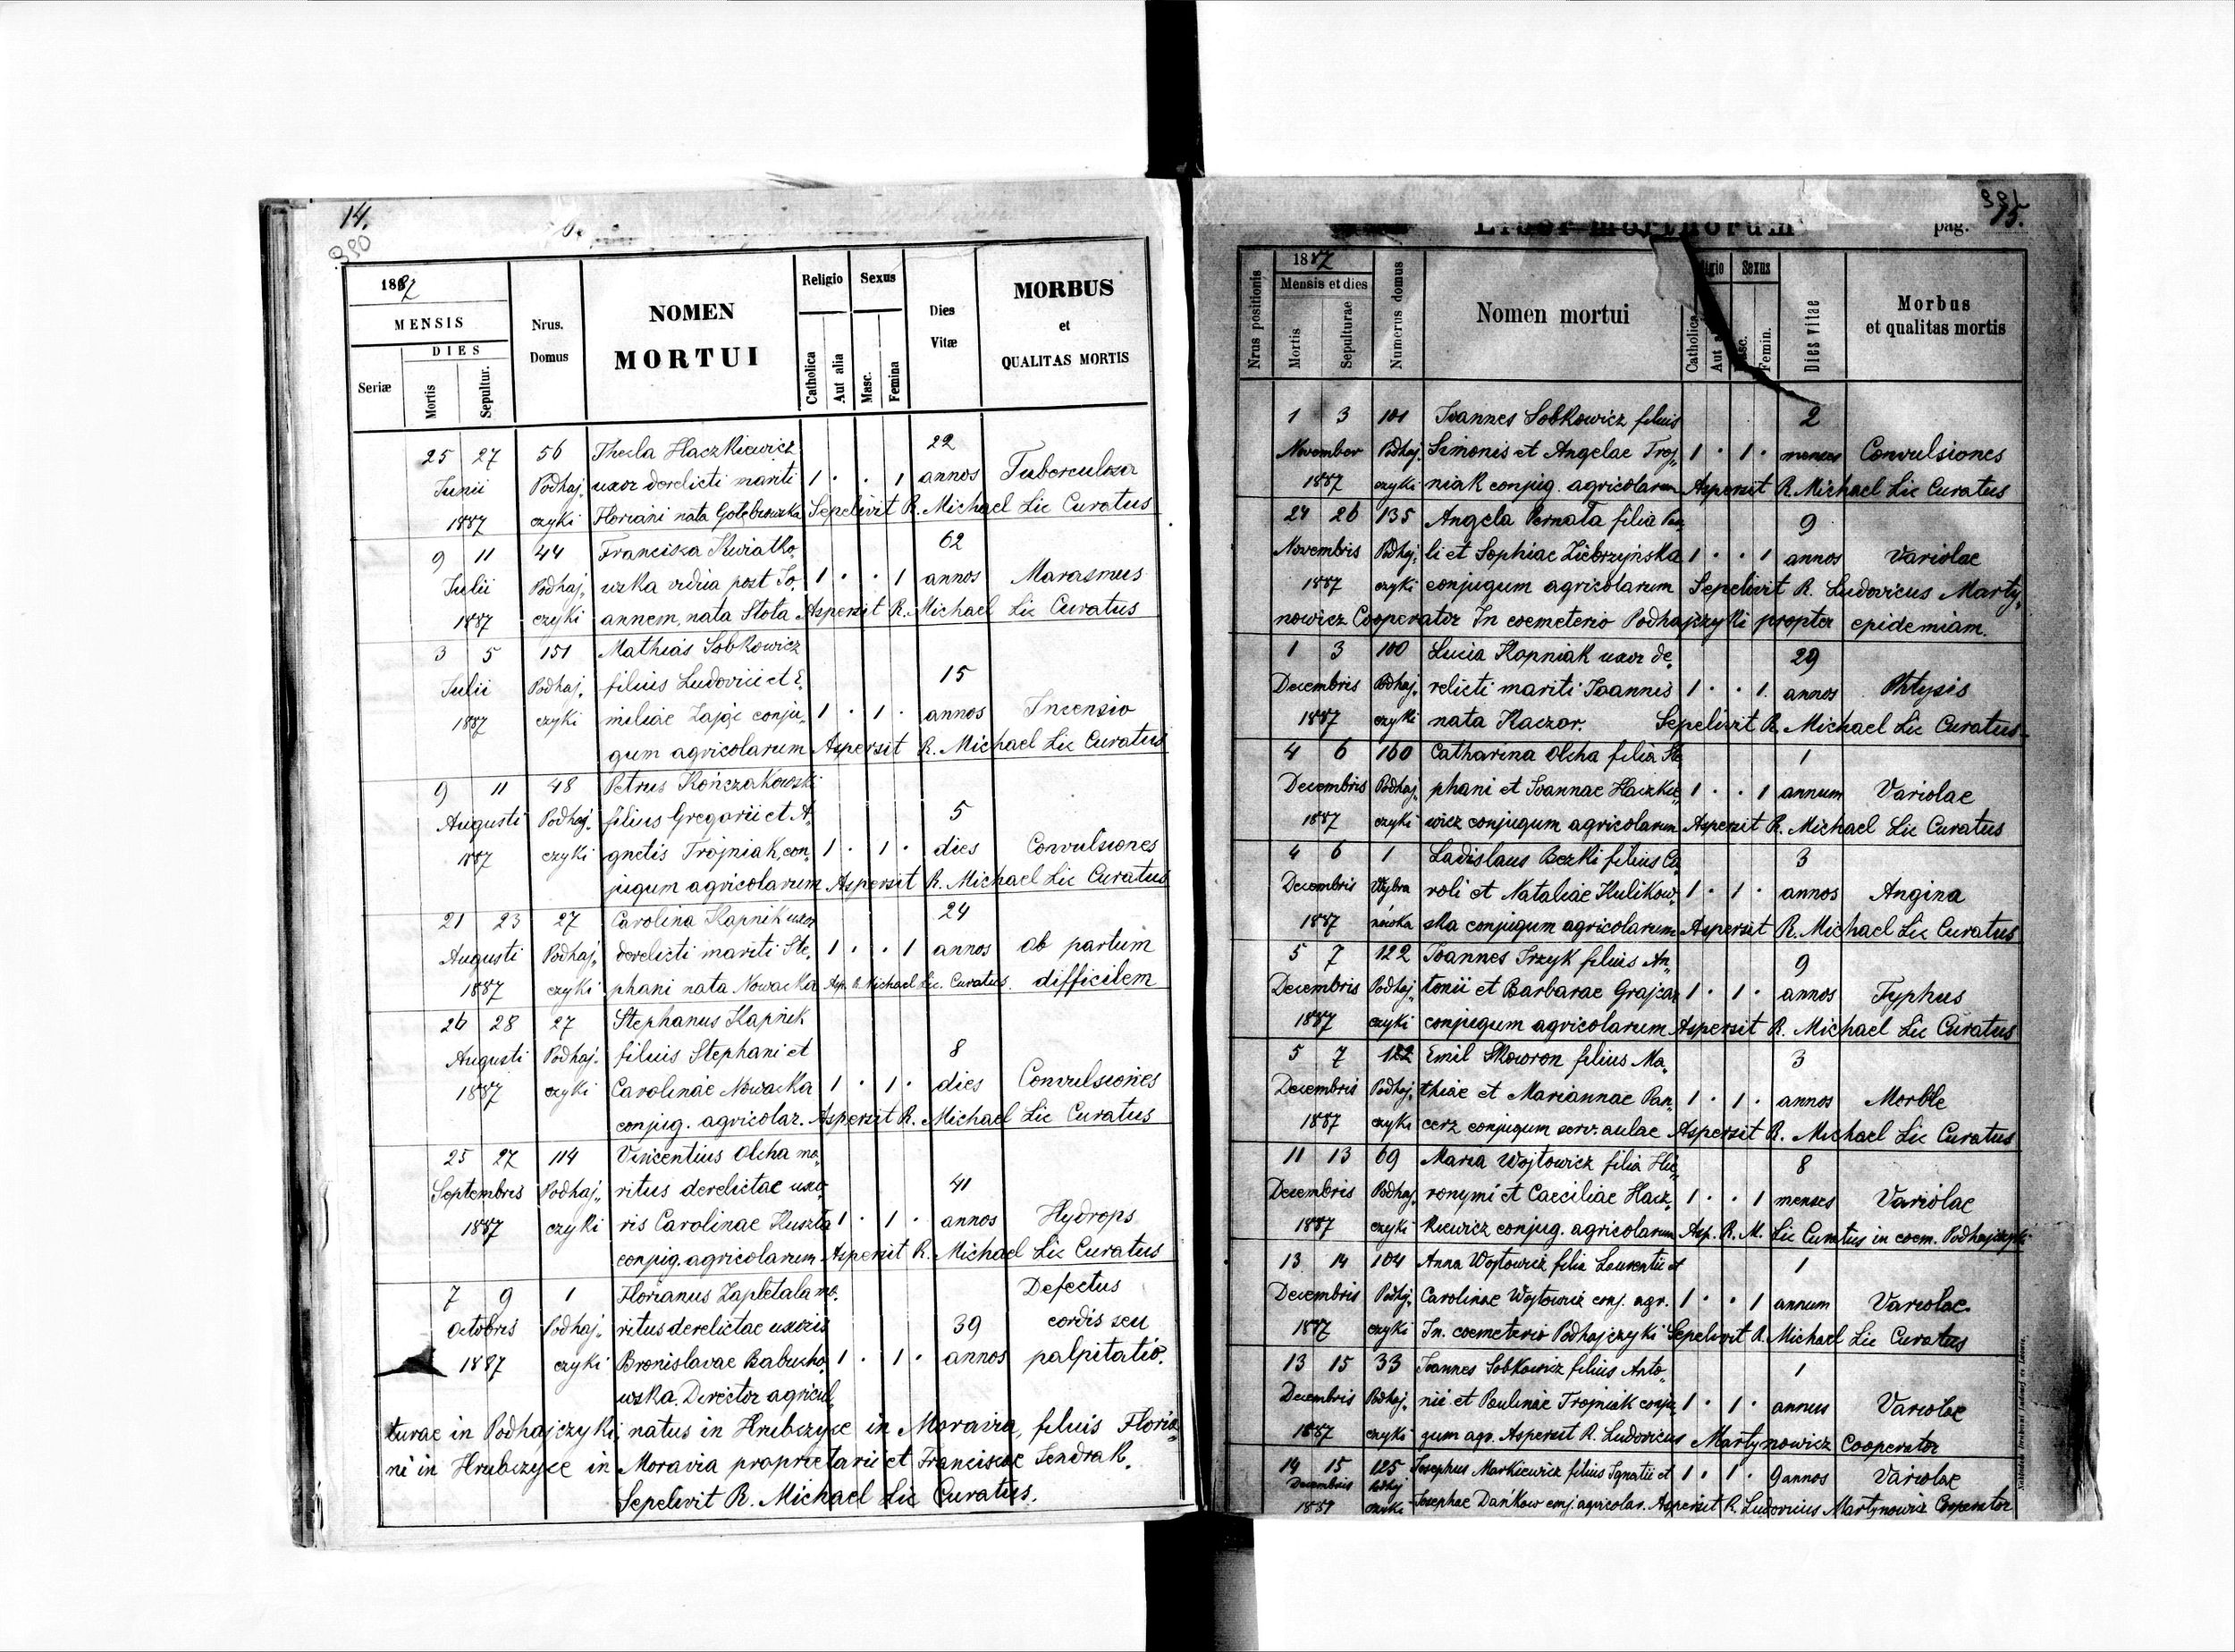 14.
380
1887
MENSIS
DIES
Seriæ
Mortis
Sepultur.
Nrus.
Domus
NOMEN
MORTUI
Religio
Sexus
Catholica
Aut alia
Masc.
Femina
Dies
Vitæ
MORBUS
et
QUALITAS MORTIS
25 27 56 Thecla Haczkiewicz 22
Junii Podhaj„ uxor derelicti mariti 1 · · 1 annos Tuberculosa
1887 czyki Floriani nata Gołębiowska Sepelivit R. Michael Lic Curatus
9 11 44 Francisca Kwiatko„ 62
Julii Podhaj„ wska vidua post Jo„ 1 · · 1 annos Marasmus
1887 czyki annem, nata Stota Aspersit R. Michael Lic Curatus
3 5 151 Mathias Sobkowicz
Julii Podhaj„ filius Ludovici et E„ 15
1887 czyki miliae Zając conju„ 1 · 1 · annos Incensio
gum agricolarum Aspersit R. Michael Lic Curatus
9 11 48 Petrus Kończakowski
Augusti Podhaj„ filius Gregorii et A„ 5
1887 czyki gnetis Trojniak, con„ 1 · 1 · dies Convulsiones
jugum agricolarum Aspersit R. Michael Lic Curatus
21 23 27 Carolina Kapnik uxor 24
Augusti Podhaj„ derelicti mariti Ste„ 1 · · 1 annos ob partum
1887 czyki phani nata Nowacka Asp. R. Michael Lic. Curatus. difficilem
26 28 27 Stephanus Kapnik
Augusti Podhaj„ filius Stephani et 8
1887 czyki Carolinae Nowacka 1 · 1 · dies Convulsiones
conjug. agricolar. Aspersit R. Michael Lic Curatus
25 27 114 Vincentius Olcha ma„
Septembris Podhaj„ ritus derelictae uxo„ 41
1887 czyki ris Carolinae Kuszta 1 · 1 · annos Hydrops
conjug. agricolarum Aspersit R. Michael Lic Curatus
7 9 1 Florianus Zapletala ma„ Defectus
Octobris Podhaj„ ritus derelictae uxoris 39 cordis seu
1887 czyki Bronislavae Babucho„ 1 · 1 · annos palpitatio.
wska. Director agricul„
turae in Podhajczyki, natus in Hrubczyce in Moravia, filius Floria„
ni in Hrubczyce in Moravia proprietarii et Franciscae Sendrak.
Sepelivit R. Michael Lic Curatus.
381
Liber mortuorum
pag. 15.
Nrus positionis
1887
Mensis et dies
Mortis
Sepulturae
Numerus domus
Nomen mortui
Sexus
Catholica
Aut
Masc.
Femin.
Dies vitae
Morbus
et qualitas mortis
1 3 101 Joannes Sobkowicz filius 2
November Podhaj„ Simonis et Angelae Troj„ 1 · 1 · menses Convulsiones
1887 czyki niak conjug. agricolarum Aspersit R. Michael Lic Curatus
24 26 135 Angela Pernata filia Pau„ 9
Novembris Podhaj„ li et Sophiae Ziebrzyńska 1 · · 1 annos Variolae
1887 czyki conjugum agricolarum Sepelivit R. Ludovicus Marty„
nowicz Cooperator In coemeterio Podhajczyki propter epidemiam.
1 3 100 Lucia Kapniak uxor de„ 29
Decembris Podhaj„ relicti mariti Joannis 1 · · 1. annos Phtysis
1887 czyki nata Kaczor. Sepelivit R. Michael Lic Curatus
4 6 160 Catharina Olcha filia Ste„ 1
Decembris Podhaj„ phani et Joannae Haczkie„ 1 · · 1 annum Variolae
1887 czyki wicz conjugum agricolarum Aspersit R. Michael Lic Curatus
4 6 1 Ladislaus Bezki filius Ca„ 3
Decembris Wybra roli et Nataliae Kulikow„ 1 · 1 · annos Angina
1887 nówka ska conjugum agricolarum Aspersit R. Michael Lic Curatus
5 7 122 Joannes Irzyk filius An„ 9
Decembris Podhaj„ tonii et Barbarae Grajcar 1 · 1 · annos Typhus
1887 czyki conjugum agricolarum Aspersit R. Michael Lic Curatus
5 7 122 Emil Skowron filius Ma„ 3
Decembris Podhaj„ thiae et Mariannae Pan„ 1 · 1 · annos Morble
1887 czyki cerz conjugum serv. aulae Aspersit R. Michael Lic Curatus
11 13 69 Maria Wojtowicz filia Hie„ 8
Decembris Podhaj„ ronymi et Caeciliae Hacz„ 1 · · 1 menses Variolae
1887 czyki kiewicz conjug. agricolarum Asp. R. M. Lic Curatus in coem. Podhajczyki
13 14 104 Anna Wojtowicz filia Laurentii et 1
Decembris Podhj„ Carolinae Wojtowicz conj. agr. 1 · · 1 annum Variolae.
1887 czyki In coemeterio Podhajczyki Sepelivit R. Michael Lic Curatus
13 15 33 Joannes Sobkowicz filius Anto„ 1
Decembris Podhaj„ nii et Paulinae Trojniak conju„ 1 · 1 · annus Variolae
1887 czyki gum agr. Aspersit R. Ludovicus Martynowicz Cooperator
14 15 125 Josephus Markiewicz filius Ignatii et 1 · 1 · 9 annos Variolae
Decembris Podhj
1887 czyki Josephae Dańkow conj. agricolar. Aspersit R. Ludovicus Martynowicz Cooperator